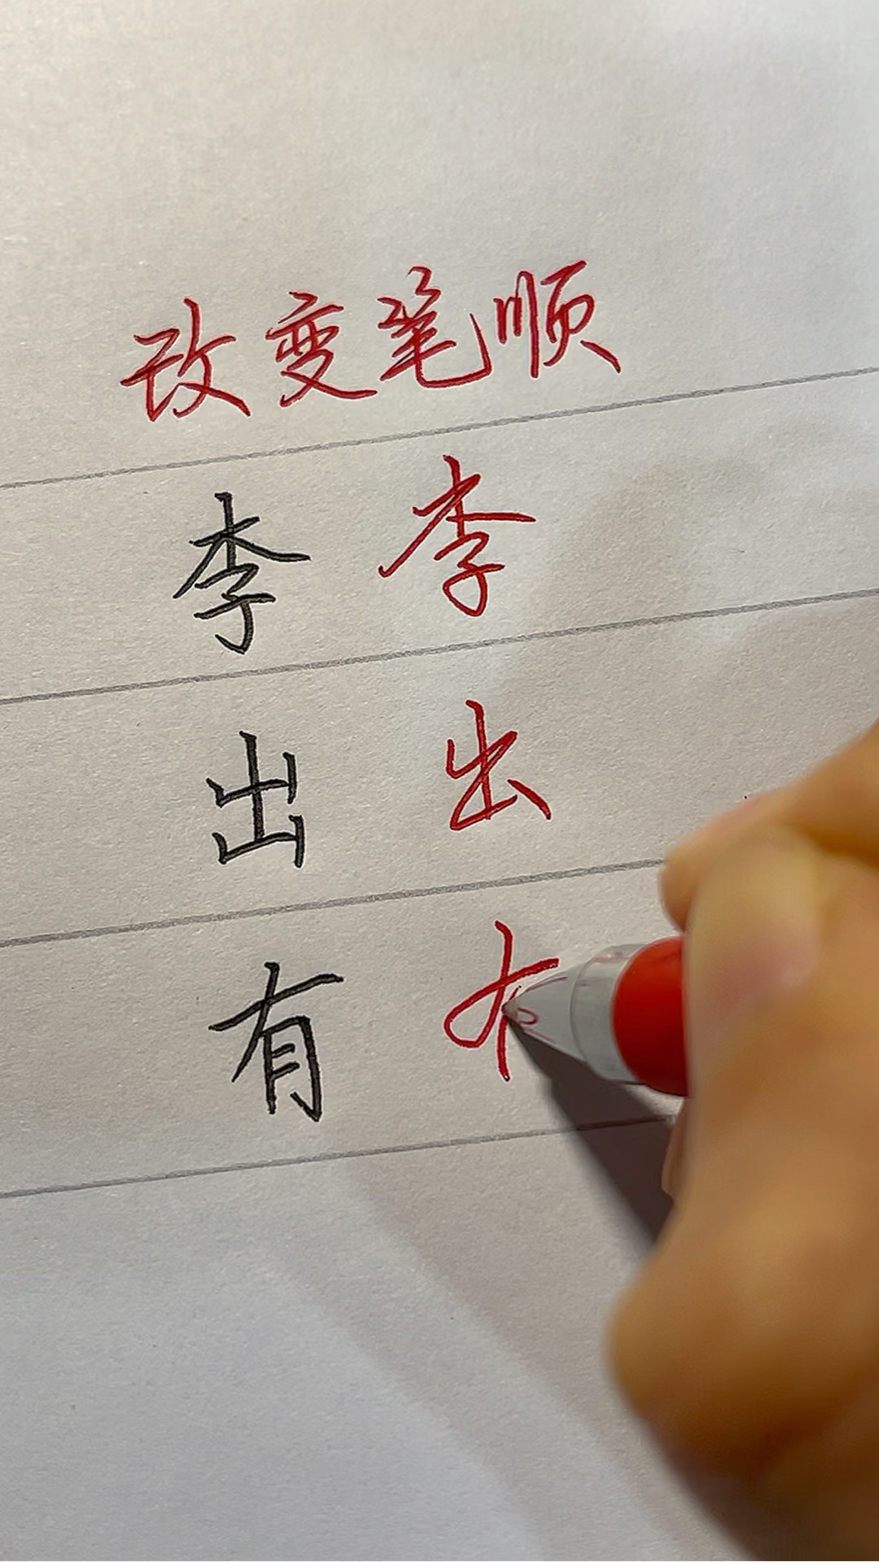 改变笔顺
李 李
出 出
有